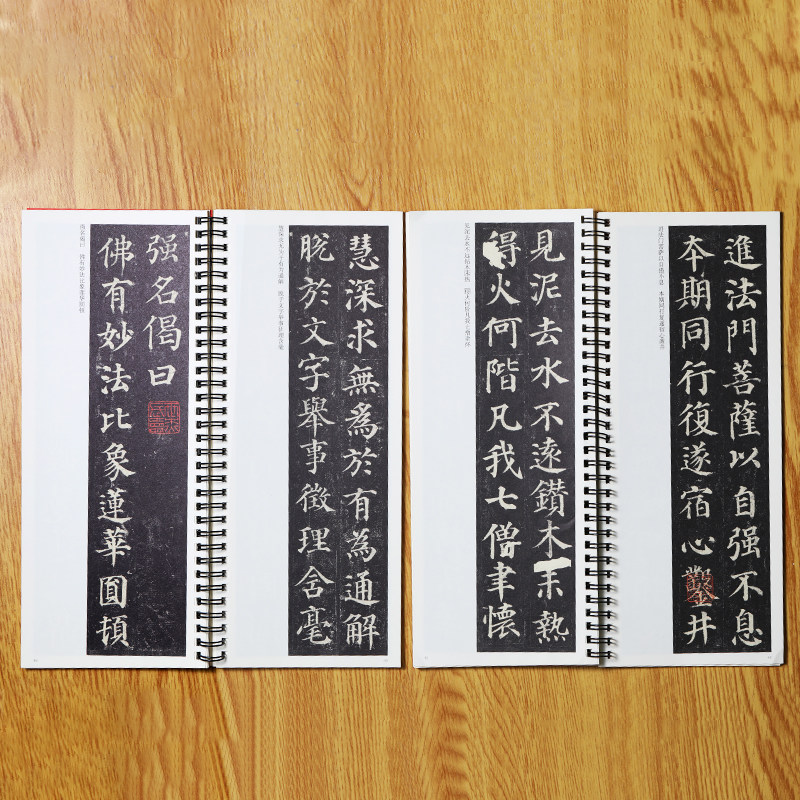 進法門菩薩以自强不息
本期同行復遂宿心鑿井
見泥去水不遠鑽木未熱
得火何階凡我七僧聿懷
慧深求無為於有為通解
脱於文字舉事徵理含毫
强名偈曰
佛有妙法比象蓮華圓頓